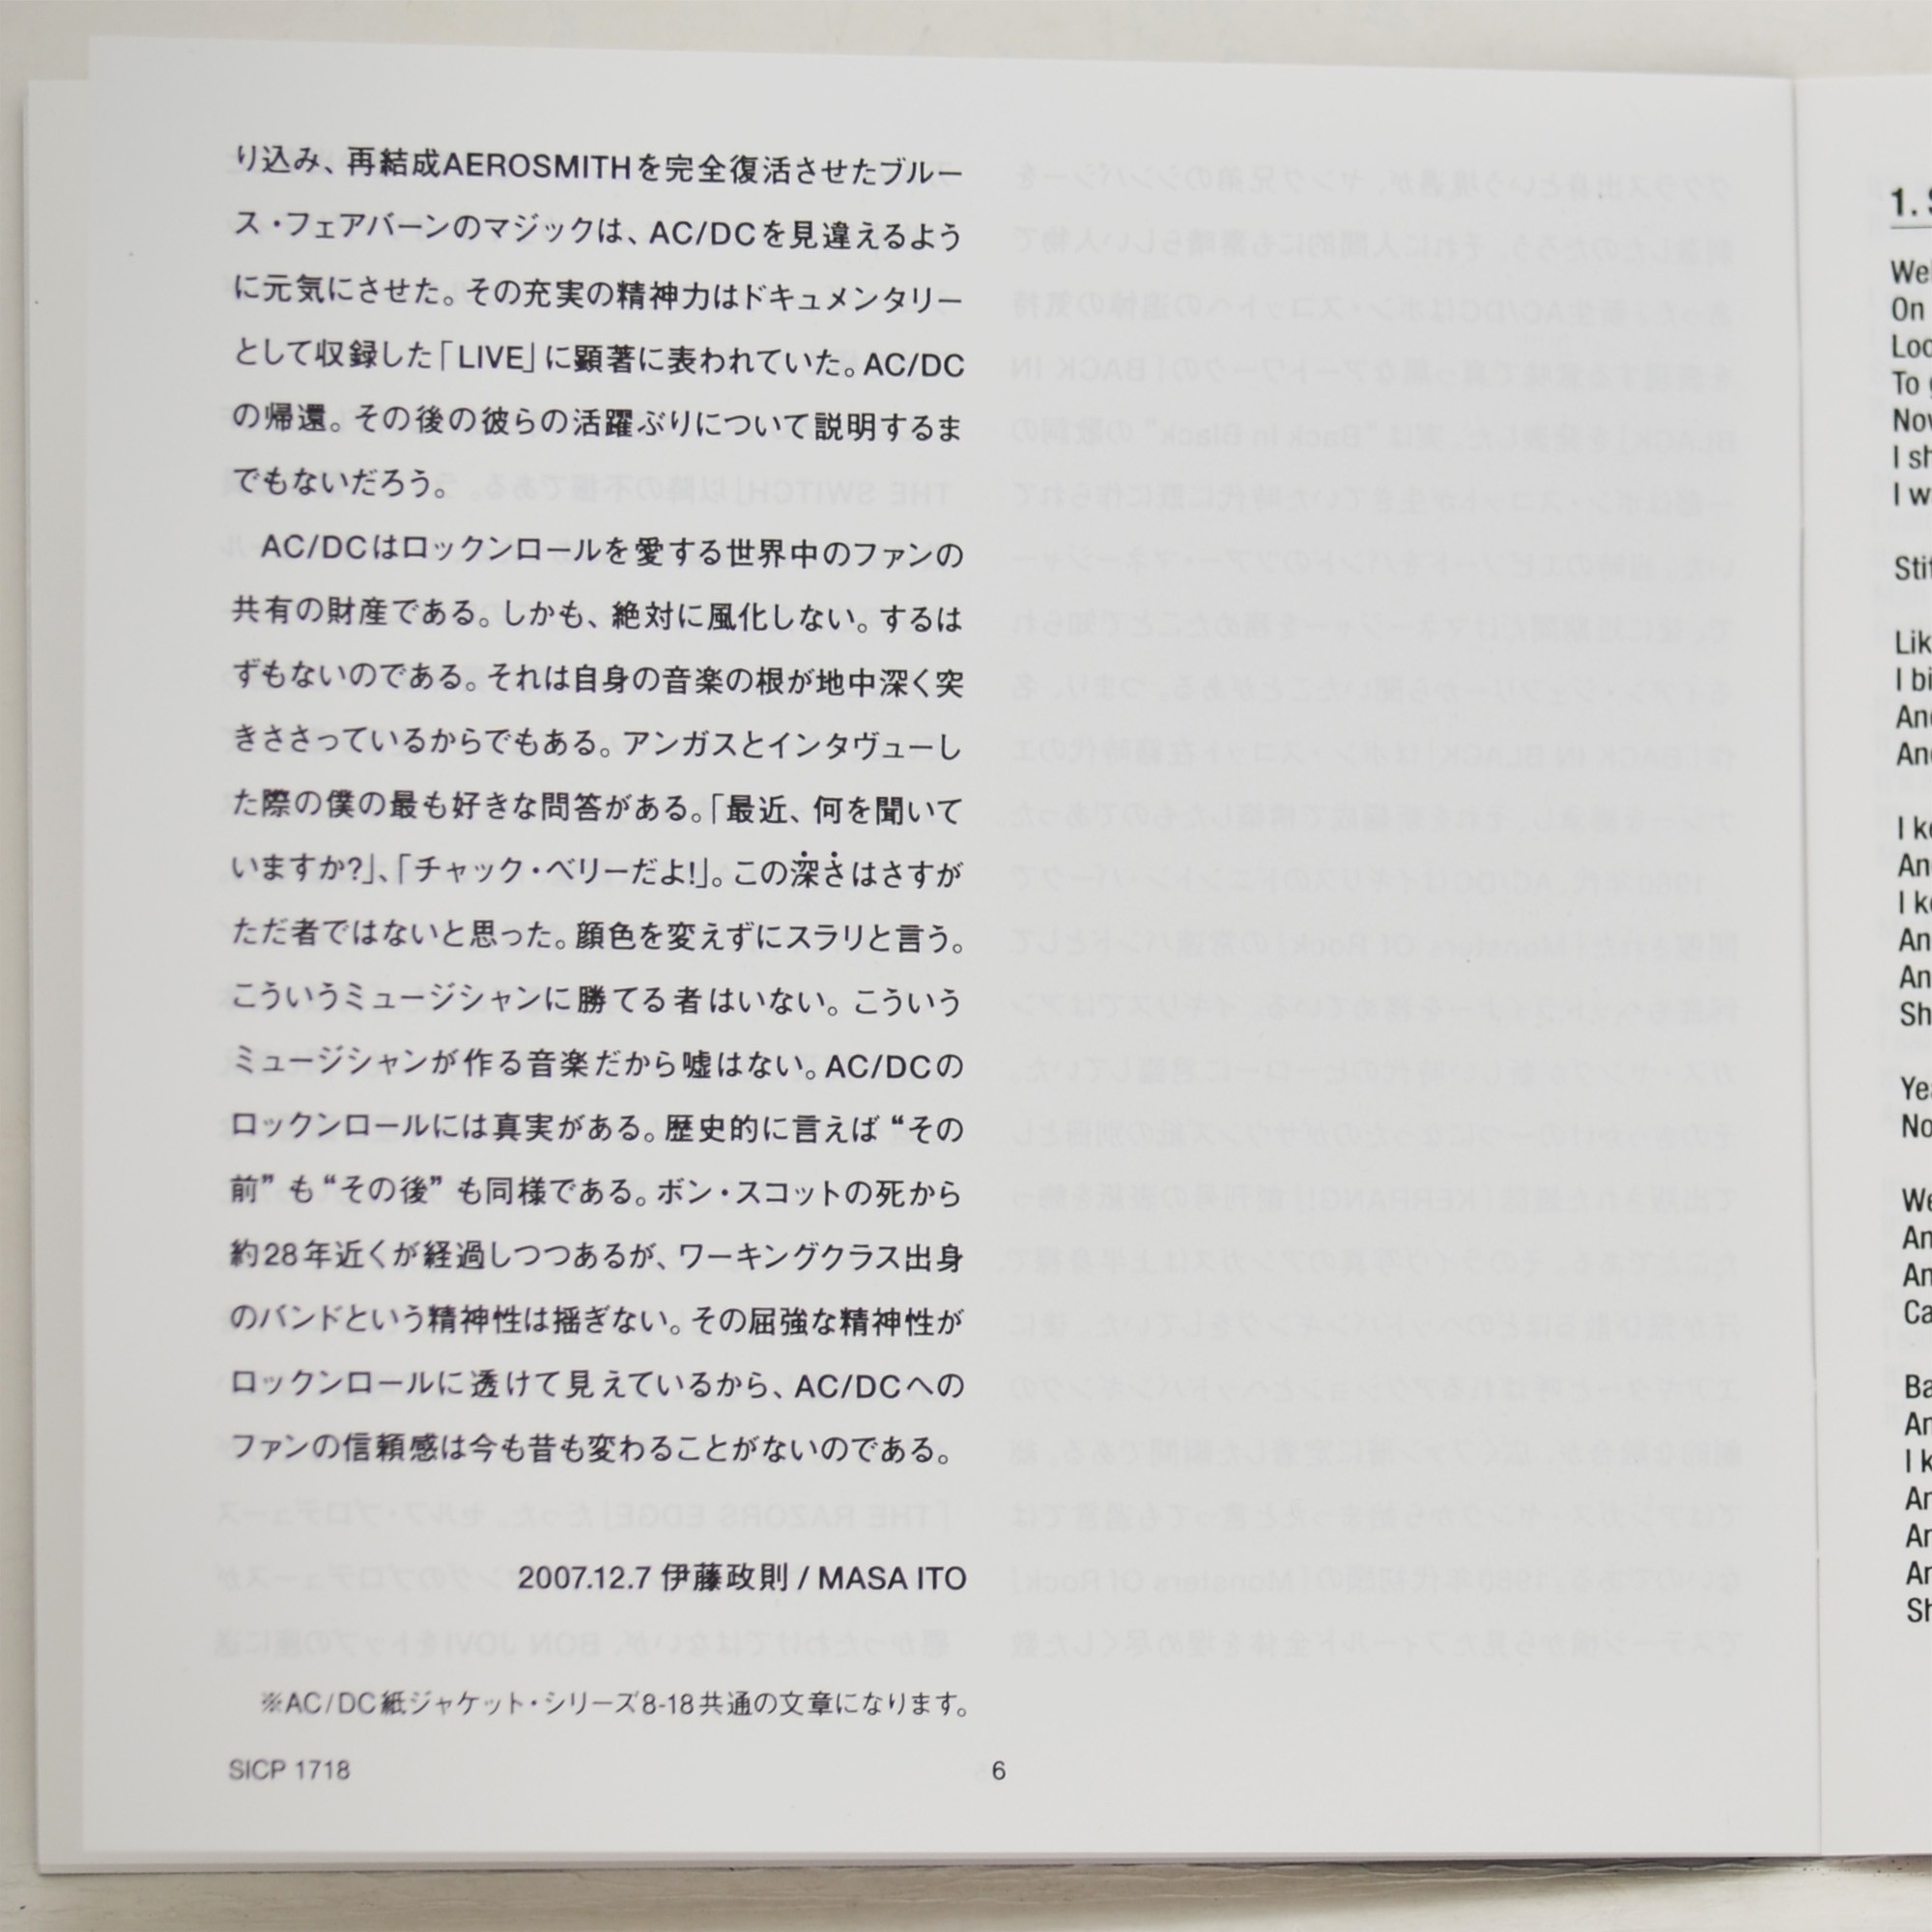 り込み、再結成AEROSMITHを完全復活させたブルー
ス・フェアバーンのマジックは、AC/DCを見違えるよう
に元気にさせた。その充実の精神力はドキュメンタリー
として収録した「LIVE」に顕著に表われていた。AC/DC
の帰還。その後の彼らの活躍ぶりについて説明するま
でもないだろう。
AC/DCはロックンロールを愛する世界中のファンの
共有の財産である。しかも、絶対に風化しない。するは
ずもないのである。それは自身の音楽の根が地中深く突
きささっているからでもある。アンガスとインタヴューし
た際の僕の最も好きな問答がある。「最近、何を聞いて
いますか?」、「チャック・ベリーだよ!」。この深さはさすが
ただ者ではないと思った。顔色を変えずにスラリと言う。
こういうミュージシャンに勝てる者はいない。こういう
ミュージシャンが作る音楽だから嘘はない。AC/DCの
ロックンロールには真実がある。歴史的に言えば“その
前”も“その後”も同様である。ボン・スコットの死から
約28年近くが経過しつつあるが、ワーキングクラス出身
のバンドという精神性は揺ぎない。その屈強な精神性が
ロックンロールに透けて見えているから、AC/DCへの
ファンの信頼感は今も昔も変わることがないのである。
2007.12.7 伊藤政則 / MASA ITO
※AC/DC紙ジャケット・シリーズ8-18共通の文章になります。
SICP 1718
6
1.
On
To
I
I
I
I